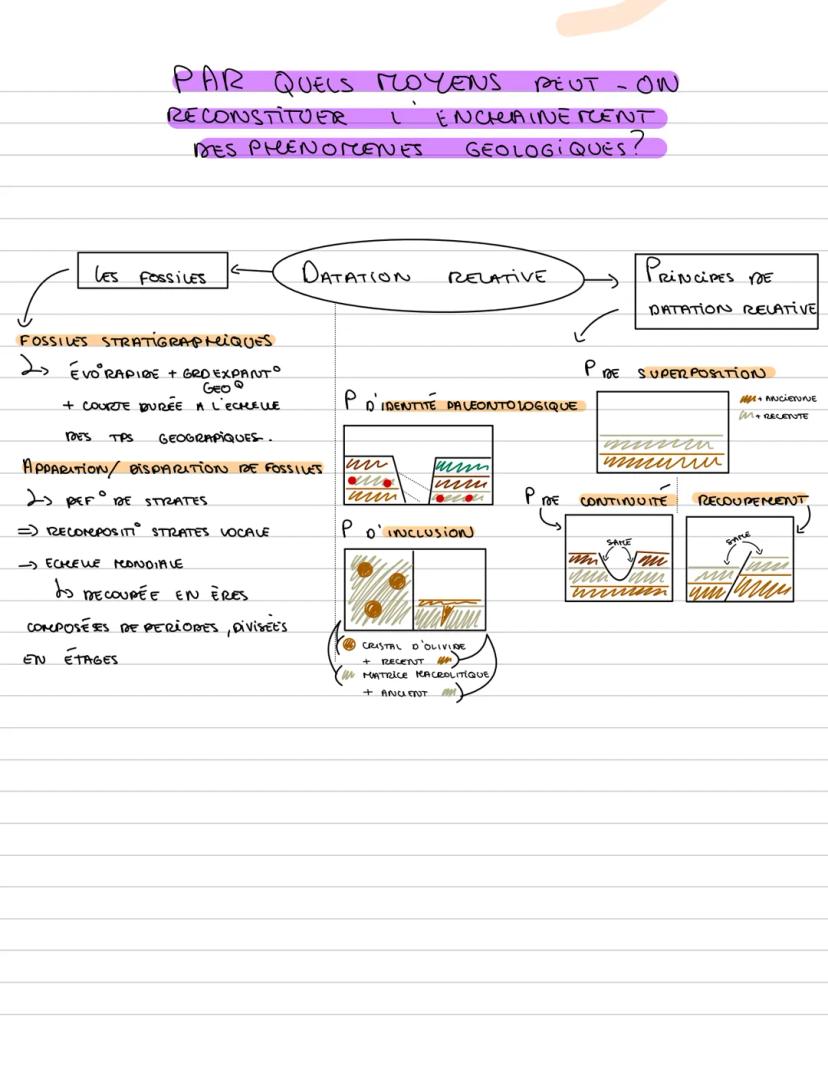 PAR QUELS MOYENS PEUT-ON
RECONSTITUER L'ENCHAINEMENT
DES PHENOMENES GEOLOGIQUES?
LES FOSSILES
DATATION RELATIVE
PRINCIPES DE
DATATION RELATIVE
FOSSILES STRATIGRAPHIQUES
ÉVO° RAPIDE + GRD EXPANT°
GEO^Q
+ COURTE DURÉE A L'ECHELLE
DES TPS GEOGRAPIQUES.
APPARITION/ DISPARITION DE FOSSILES
DEF° DE STRATES
=> RECOMPOSIT° STRATES LOCALE
→ ECHELLE MONDIALE
DECOUPÉE EN ÈRES
COMPOSÉES DE PERIODES, DIVISÉES
EN ÉTAGES
P D'IDENTITÉ PALEONTOLOGIQUE
P D'INCLUSION
CRISTAL D'OLIVINE
+ RECENT
MATRICE MACROLITIQUE
+ ANCIENT
P DE SUPERPOSITION
+ ANCIENNE
+ RECENTE
P DE CONTINUITÉ
RECOUPEMENT
SAME
SAME